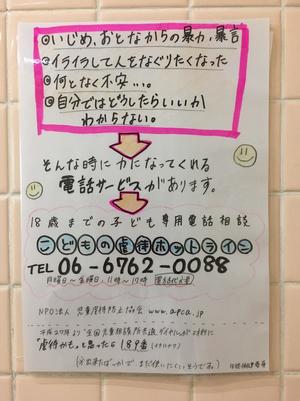 ◎いじめ、おとなからの暴力、暴言
◎イライラして人をなぐりたくなった
◎何となく不安...。
◎自分ではどうしたらいいか
わからない。
そんな時に力になってくれる
電話サービスがあります。
18歳までの子ども専用電話相談
こどもの虐待ホットライン
TEL 06-6762-0088
月曜日〜金曜日 11時〜17時
NPO法人 児童虐待防止協会 www.apca.jp
平成27年より"全国児童相談所共通ダイヤル"が
「虐待かも」と思ったら189番(イチハヤク)